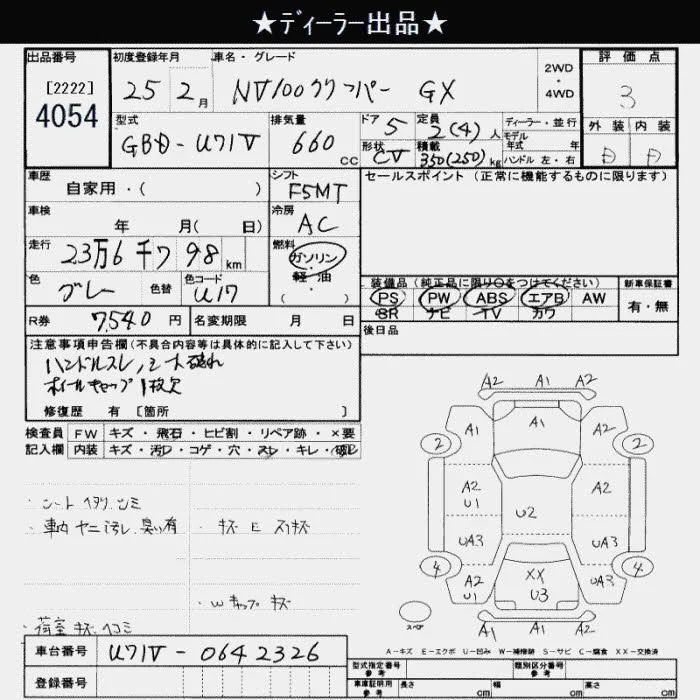 ★ディーラー出品★
出品番号
[2222]
4054
初度登録年月
25 2月
車名・グレード
NV100クリッパー GX
2WD
・
4WD
評価点
3
外装 内装
D D
型式
GBD-U71V
排気量
660 CC
ドア 5
形状 CV
定員 2(4)人
積載 350(250)kg
ディーラー・並行
モデル
年式 年
ハンドル 左・右
車歴
自家用・( )
シフト
F5MT
セールスポイント (正常に機能するものに限ります)
車検
年 月( 日)
冷房
AC
走行
23万6千798km
燃料
ガソリン
・
軽油
( )
色
グレー
色替
色コード
U17
装備品(純正品に限り○をつけてください)
PS PW ABS エアB AW
SR ナビ TV カワ
新車保証書
有・無
R券 7,540円
名変期限 月 日
後日品
注意事項申告欄(不具合内容等は具体的に記入して下さい)
ハンドルスレ、シート破れ
ホイールキャップ1枚欠
修復歴 有 [箇所 ]
検査員 FW キズ・飛石・ヒビ割・リペア跡・×要
記入欄 内装 キズ・汚レ・コゲ・穴・スレ・キレ・破レ
・シート ヘタリ シミ
・車内 ヤニ汚レ、臭い有
・キズ E スリキズ
・Wキャップ キズ
・荷室 キズ ヘコミ
A2 A1 A2
A1 A1 A2
2 2
A2 U1 A2
U2
UA3 UA3
4 4
A2 U1 XX U3 UA3
スペア
A1 A1 A2
A-キズ E-エクボ U-凹み W-補修跡 S-サビ C-腐食 XX-交換済
車台番号 U71V-0642326
登録番号
型式指定番号
参考
類別区分番号
参考
車庫証明用
参考
長さ cm
幅 cm
高さ cm